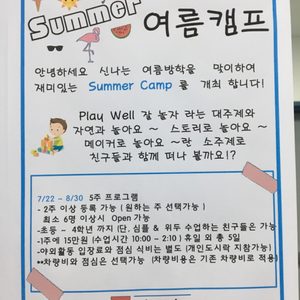 Summer
여름캠프
안녕하세요 신나는 여름방학을 맞이하여
재미있는 Summer Camp 를 개최 합니다!
Play Well 잘 놀자 라는 대주제와
자연과 놀아요 ~ 스토리로 놀아요 ~
메이커로 놀아요 ~란 소주제로
친구들과 함께 떠나 볼까요!?
7/22 ~ 8/30 5주 프로그램
- 2주 이상 등록 가능 ( 원하는 주 선택가능 )
최소 6명 이상시 Open 가능
-초등~ 4학년 까지 (단, 심플 & 위두 수업하는 친구들은 가능
-1주에 15만원 (수업시간 10:00 ~ 2:10 ) 휴일 외 총 5일
-야외활동 입장료와 점심 식비는 별도 (개인도시락 지참가능)
**차량비와 점심은 선택가능 (차량비용은 기존 차량비로 적용)